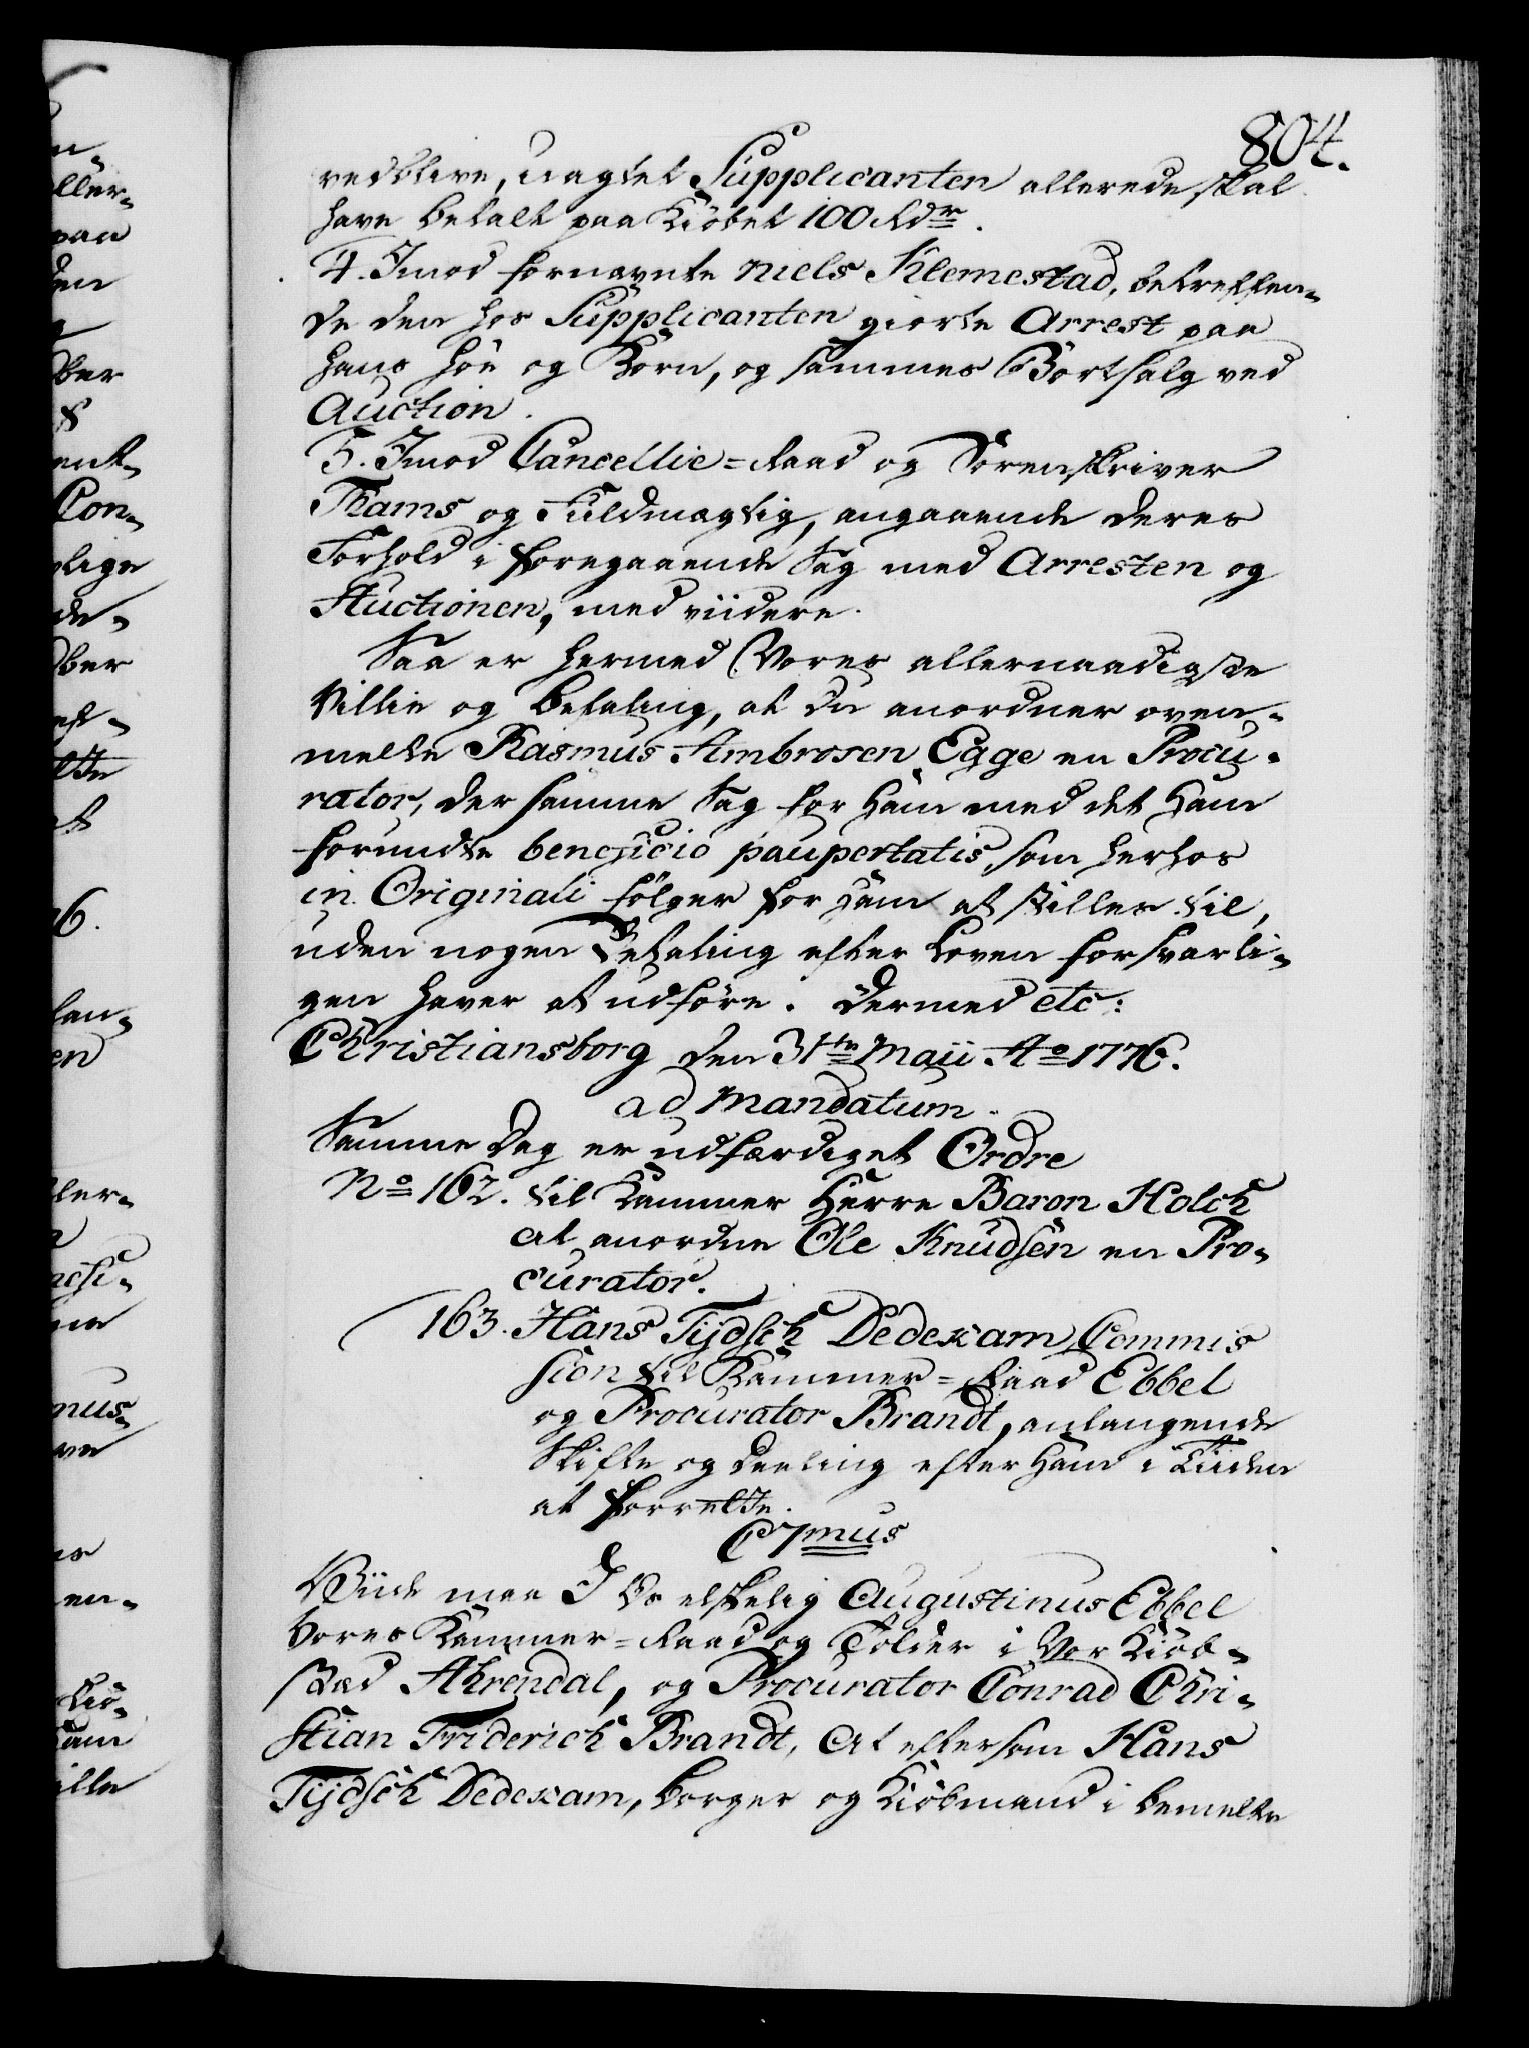 804.
vedblive, uagtet Supplicanten allerede skal
have betalt paa Kiöbet 100 Rdr.
4. Imod fornævnte Niels Klemestad, betreffen-
de den hos Supplicanten giorte Arrest paa
hans Höe og Korn, og sammes Bortsalg ved
Auction.
5. Imod Cancellie-Raad og Sorenskriver
Thams og Fuldmægtig, angaaende deres
Forhold i foregaaende Sag med Arresten og
Auctionen, med viidere.
Saa er hermed Vores allernaadigste
Villie og Befaling, at du anordner oven-
melte Rasmus Ambrosen Egge en Procu-
rator, der samme Sag for ham med det ham
forundte beneficio paupertatis, som herhos
in Originali fölger for ham at stilles til,
uden nogen Betaling efter Loven forsvarli-
gen haver at udföre. Dermed etc:
Christiansborg den 31te Maii Ao 1776.
ad Mandatum.
Samme Dag er udfærdiget Ordre
No 162. til Kammer Herre Baron Holck
at anordne Ole Knudsen en Pro-
curator.
163. Hans Tijdsch Dedexam Commis
sion til Kammer-Raad Ebbel
og Procurator Brandt, anlangende
Skifte og Deeling efter ham i Tiiden
at forrette.
C 7mus
Viide maa I Os elskelig Augustinus Ebbel
Vores Kammer-Raad og Tolder i Vor Kiöb-
stæd Ahrendal, og Procurator Conrad Chri-
stian Friderich Brandt, At eftersom Hans
Tijdsch Dedexam, Borger og Kiöbmand i bemelte